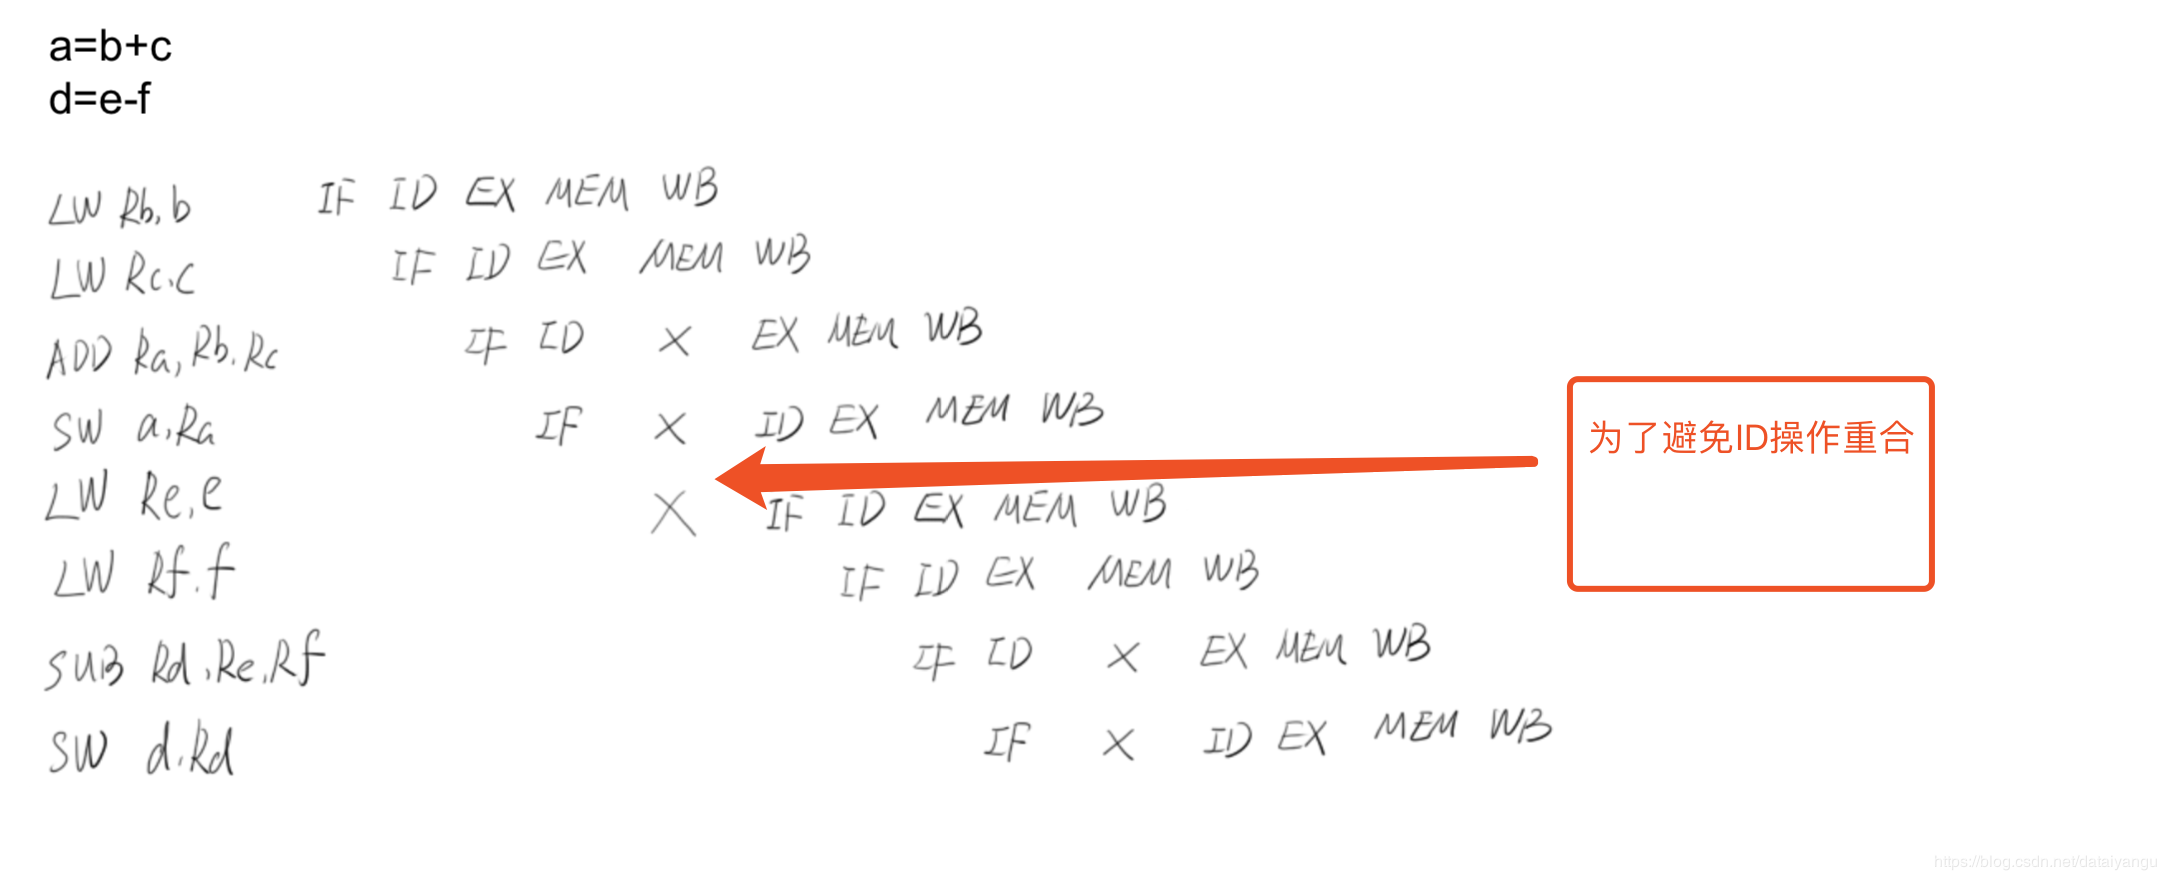 a=b+c
d=e-f
LW Rb,b IF ID EX MEM WB
LW Rc.c IF ID EX MEM WB
ADD Ra,Rb.Rc IF ID X EX MEM WB
SW a,Ra IF X ID EX MEM WB
LW Re,e X IF ID EX MEM WB
LW Rf.f IF ID EX MEM WB
SUB Rd,Re,Rf IF ID X EX MEM WB
SW d.Rd IF X ID EX MEM WB
为了避免ID操作重合
https://blog.csdn.net/dataiyangu